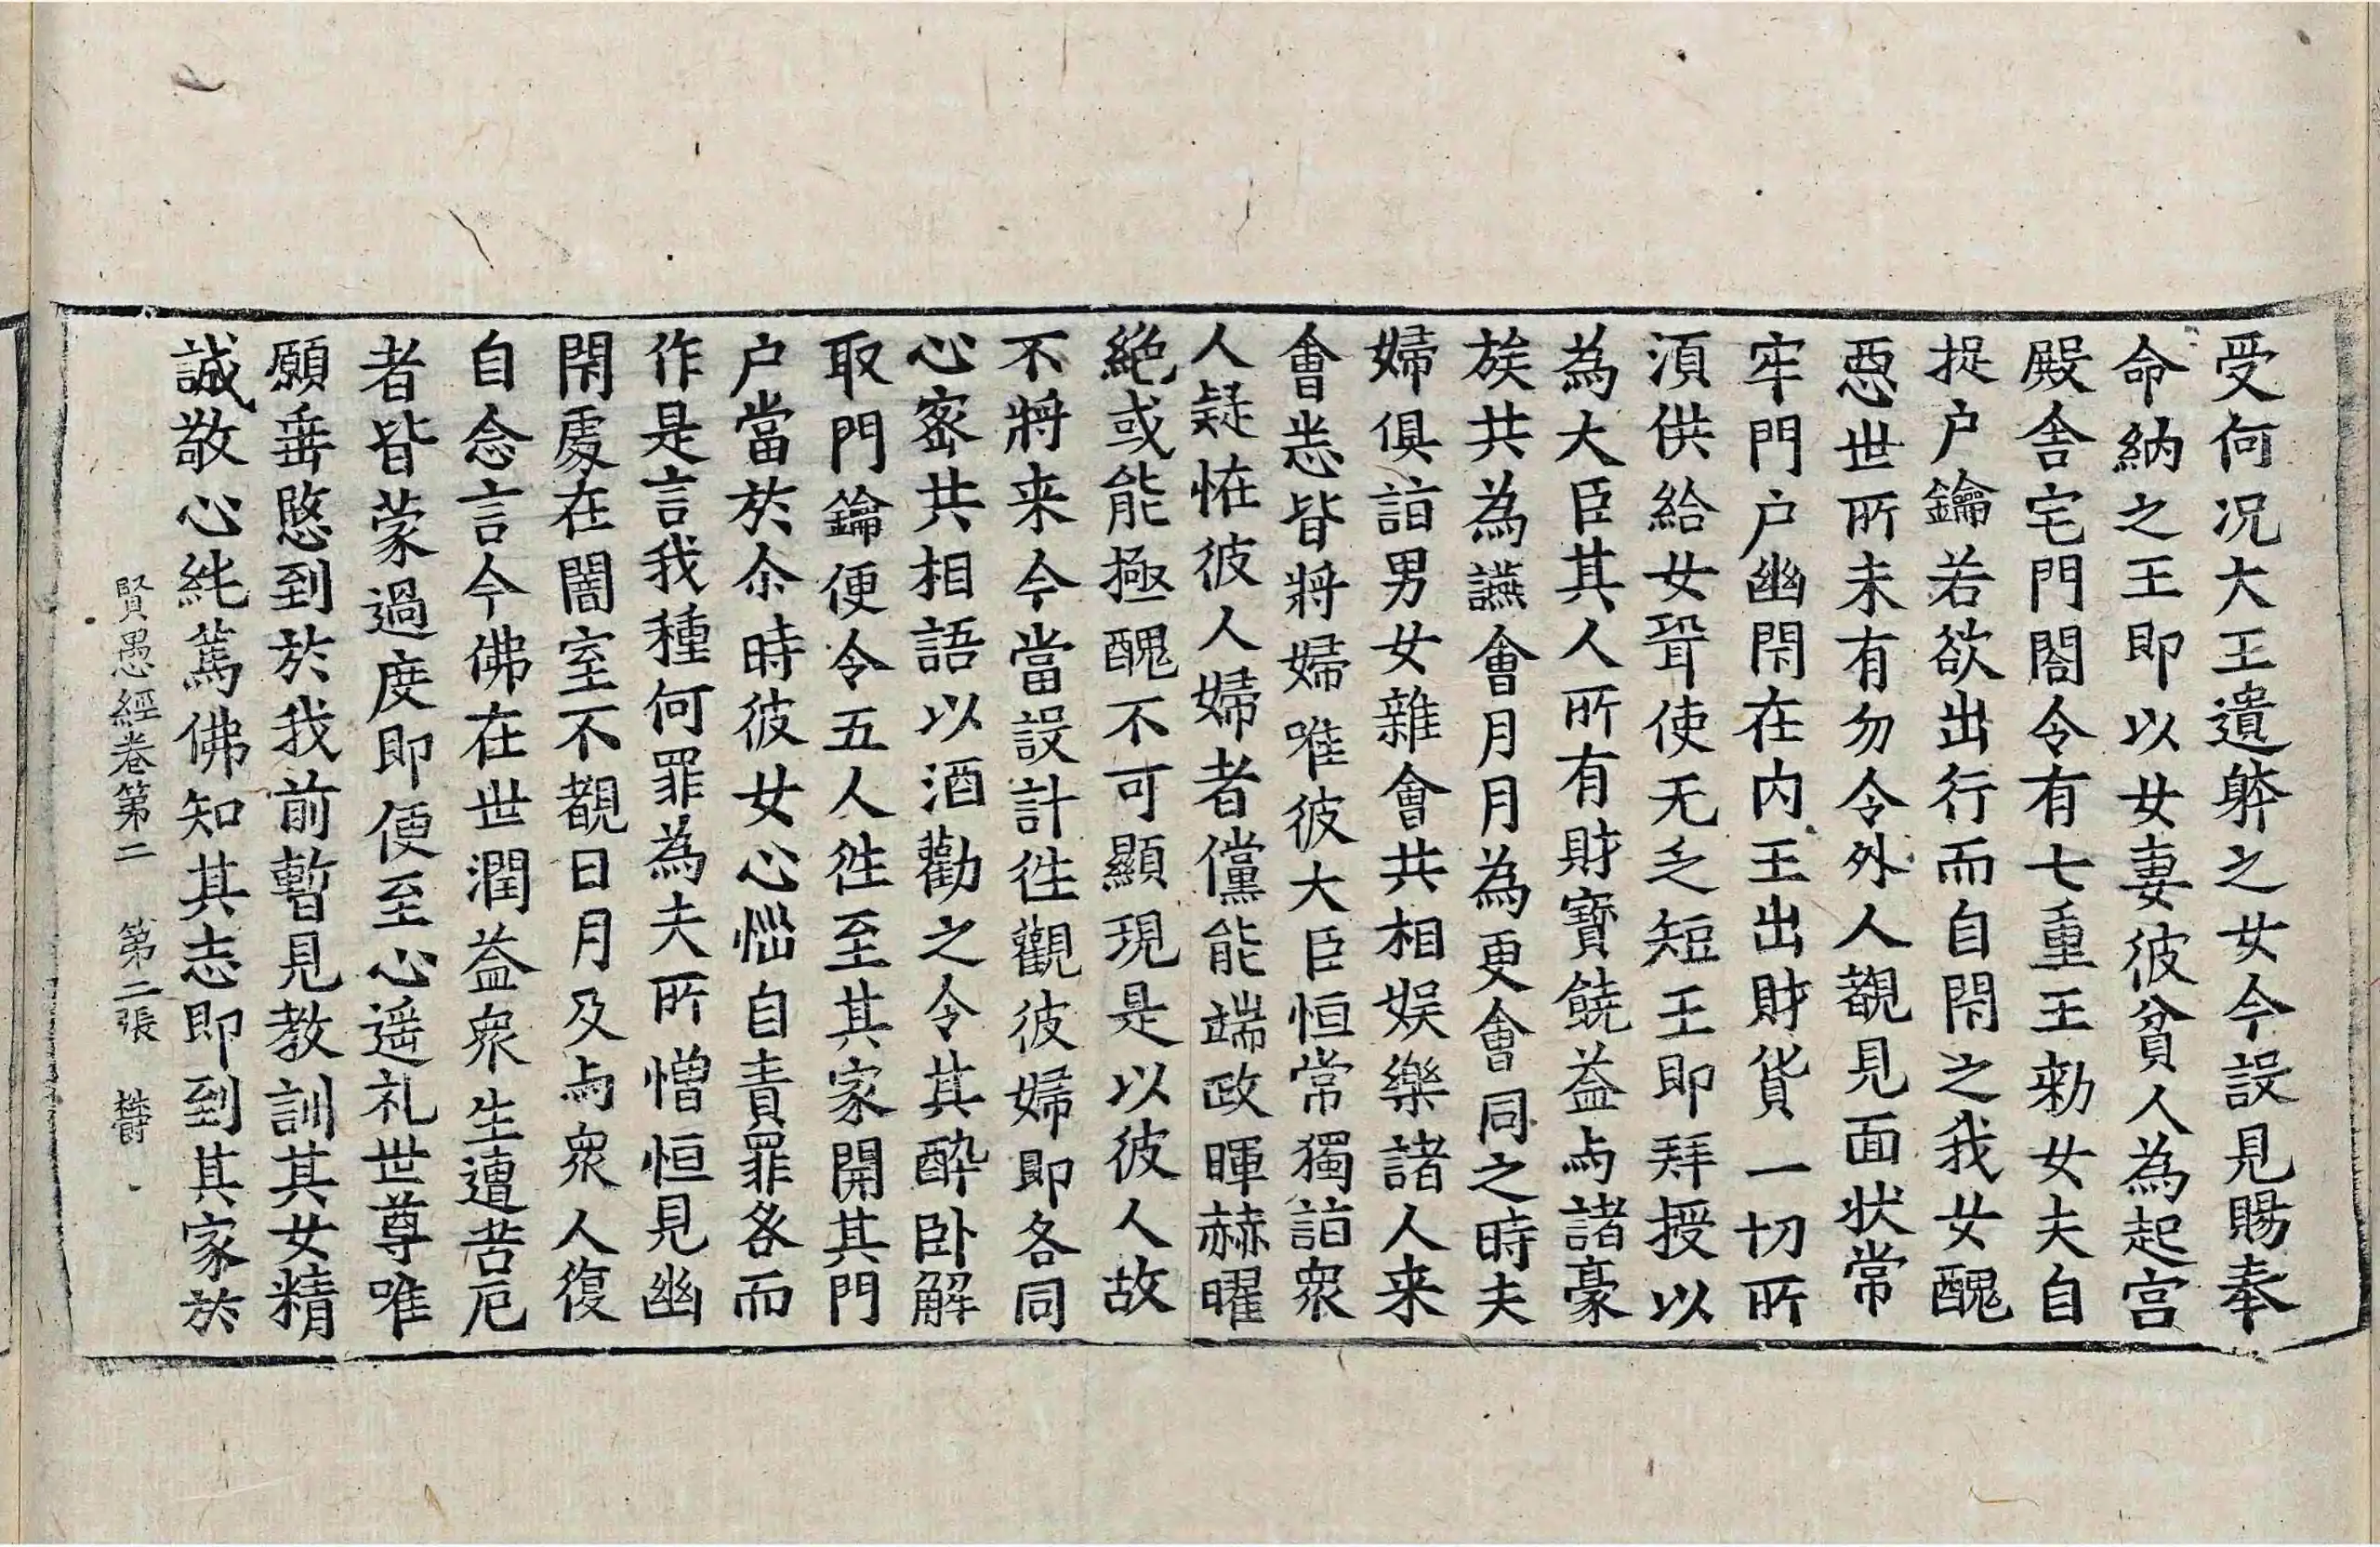 受何況大王遺躰之女今設見賜奉
命納之王即以女妻彼貧人為起宮
殿舎宅門閤令有七重王勑女夫自
捉户鑰若欲出行而自閇之我女醜
惡世所未有勿令外人覩見面状常
牢門户幽閇在内王出財貨一切所
須供給女聟使无乏短王即拜授以
為大臣其人所有財寶饒益与諸豪
族共為讌會月月為更會同之時夫
婦俱詣男女雜會共相娛樂諸人来
會悉皆將婦唯彼大臣恒常獨詣衆
人疑恠彼人婦者儻能端政暉赫曜
絶或能極醜不可顯現是以彼人故
不將来今當設計徃觀彼婦即各同
心密共相語以酒勸之令其醉卧解
取門鑰便令五人徃至其家開其門
户當於尒時彼女心惱自責罪咎而
作是言我種何罪為夫所憎恒見幽
閇處在闇室不覩日月及与衆人復
自念言今佛在世潤益衆生遭苦厄
者皆蒙過度即便至心遥礼世尊唯
願垂愍到於我前暫見教訓其女精
誠敬心純篤佛知其志即到其家於
賢愚經卷第二　第二張　欝